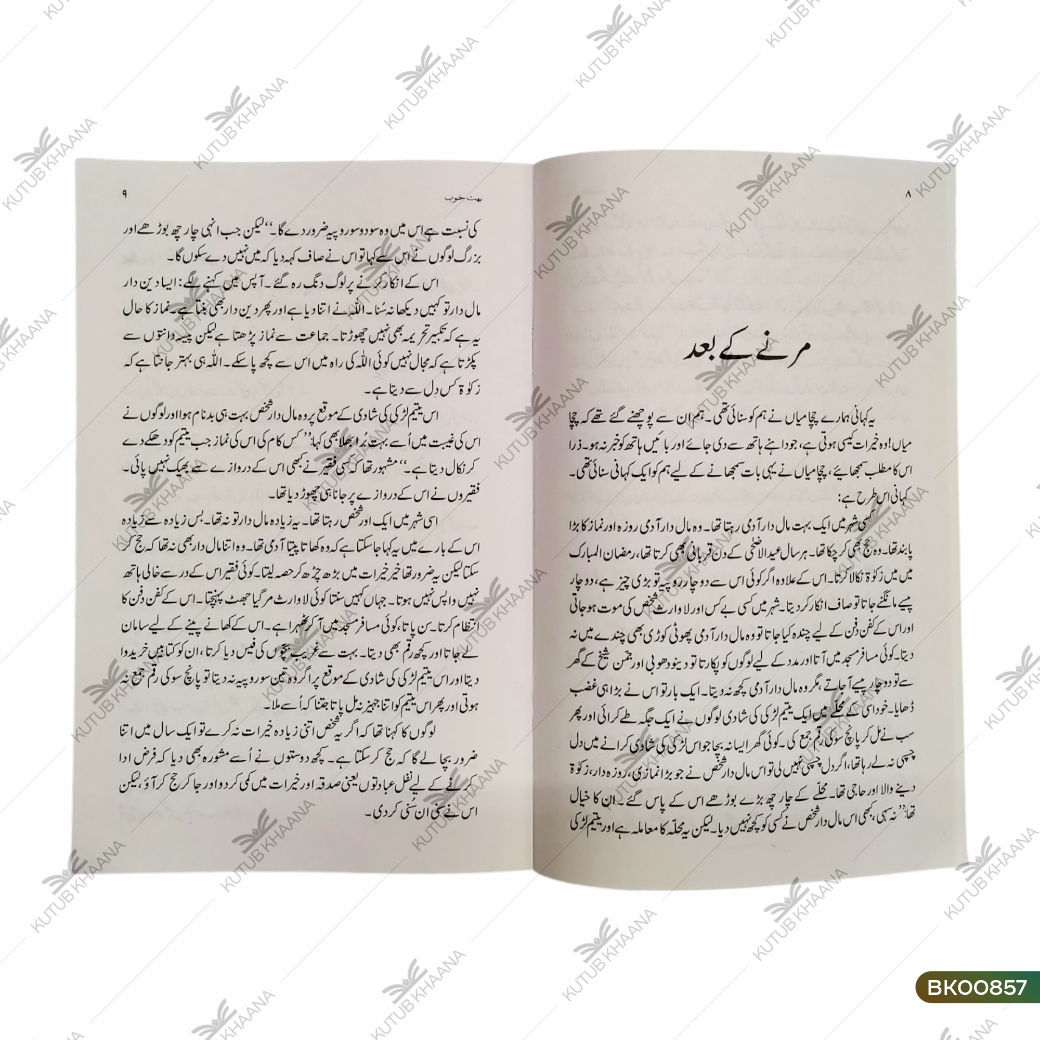 ۸
مرنے کے بعد
یہ کہانی ہمارے چچا میاں نے ہم کو سنائی تھی۔ ہم ان سے پوچھنے گئے تھے کہ چچا
میاں! وہ خیرات کیسی ہوتی ہے، جو داہنے ہاتھ سے دی جائے اور بائیں ہاتھ کو خبر نہ ہو۔ ذرا
اس کا مطلب سمجھائیے، چچا میاں نے یہی بات سمجھانے کے لیے ہم کو ایک کہانی سنائی تھی۔
کہانی اس طرح ہے:
کسی شہر میں ایک بہت مال دار آدمی رہتا تھا۔ وہ مال دار آدمی روزہ اور نماز کا بڑا
پابند تھا۔ وہ حج بھی کر چکا تھا۔ ہر سال عید الاضحیٰ کے دن قربانی بھی کرتا تھا، رمضان المبارک
میں میں زکوٰۃ نکالا کرتا۔ اس کے علاوہ اگر کوئی اس سے دو چار روپیہ تو بڑی چیز ہے، دو چار
پیسے مانگنے جاتا تو صاف انکار کر دیتا۔ شہر میں کسی بے کس اور لاوارث شخص کی موت ہو جاتی
اور اس کے کفن دفن کے لیے چندہ کیا جاتا تو وہ مال دار آدمی پھوٹی کوڑی بھی چندے میں نہ
دیتا۔ کوئی مسافر مسجد میں آتا اور مدد کے لیے لوگوں کو پکارتا تو دینو دھوبی اور جمّن شیخ کے گھر
سے تو دو چار پیسے آ جاتے، مگر وہ مال دار آدمی کچھ نہ دیتا۔ ایک بار تو اس نے بڑا ہی غضب
ڈھایا۔ خود اسی کے محلّے میں ایک یتیم لڑکی کی شادی لوگوں نے ایک جگہ طے کرائی اور پھر
سب نے مل کر پانچ سو کی رقم جمع کی۔ کوئی گھر ایسا نہ بچا جو اس لڑکی کی شادی کرانے میں دل
چسپی نہ لے رہا تھا، اگر دل چسپی نہیں لی تو اس مال دار شخص نے جو بڑا نمازی، روزہ دار، زکوٰۃ
دینے والا اور حاجی تھا۔ محلّے کے چار چھ بڑے بوڑھے اس کے پاس گئے۔ ان کا خیال
تھا: ’’نہ سہی، کبھی اس مال دار شخص نے کسی کو کچھ نہیں دیا۔ لیکن یہ محلّہ کا معاملہ ہے اور یتیم لڑکی
بہت خوب
۹
کی نسبت ہے اس میں وہ سو دو سو روپیہ ضرور دے گا۔‘‘ لیکن جب انہی چار چھ بوڑھے اور
بزرگ لوگوں نے اس سے کہا تو اس نے صاف کہہ دیا کہ میں نہیں دے سکوں گا۔
اس کے انکار کرنے پر لوگ دنگ رہ گئے۔ آپس میں کہنے لگے: ایسا دین دار
مال دار تو کہیں دیکھا نہ سُنا۔ اللہ نے اتنا دیا ہے اور پھر دین دار بھی بنتا ہے۔ نماز کا حال
یہ ہے کہ تکبیر تحریمہ بھی نہیں چھوڑتا۔ جماعت سے نماز پڑھتا ہے لیکن پیسہ دانتوں سے
پکڑتا ہے کہ مجال نہیں کوئی اللہ کی راہ میں اس سے کچھ پا سکے۔ اللہ ہی بہتر جانتا ہے کہ
زکوٰۃ کس دل سے دیتا ہے۔
اس یتیم لڑکی کی شادی کے موقع پر وہ مال دار شخص بہت ہی بدنام ہوا اور لوگوں نے
اس کی غیبت میں اُسے بہت بُرا بھلا بھی کہا: ’’کس کام کی اس کی نماز جب یتیم کو دھکے دے
کر نکال دیتا ہے۔‘‘ مشہور تھا کہ کسی فقیر نے کبھی اس کے دروازے سے بھیک نہیں پائی۔
فقیروں نے اس کے دروازے پر جانا ہی چھوڑ دیا تھا۔
اسی شہر میں ایک اور شخص رہتا تھا۔ یہ زیادہ مال دار تو نہ تھا۔ بس زیادہ سے زیادہ
اس کے بارے میں یہ کہا جا سکتا ہے کہ وہ کھاتا پیتا آدمی تھا۔ وہ اتنا مال دار بھی نہ تھا کہ حج کر
سکتا لیکن یہ ضرور تھا خیر خیرات میں بڑھ چڑھ کر حصہ لیتا۔ کوئی فقیر اس کے در سے خالی ہاتھ
نہیں واپس نہیں ہوتا۔ جہاں کہیں سنتا کوئی لاوارث مر گیا جھٹ پہنچتا۔ اس کے کفن دفن کا
انتظام کرتا۔ سن پاتا، کوئی مسافر مسجد میں آ کر ٹھہرا ہے۔ اس کے کھانے پینے کے لیے سامان
لے جاتا اور کچھ رقم بھی دیتا۔ بہت سے غریب بچّوں کی فیس دیا کرتا، ان کو کتابیں خرید وا
دیتا اور اس یتیم لڑکی کی شادی کے موقع پر اگر وہ تین سو روپیہ نہ دیتا تو پانچ سو کی رقم جمع نہ
ہوتی اور پھر اس یتیم کو اتنا جہیز نہ مل پاتا جتنا کہ اُسے ملا۔
لوگوں کا کہنا تھا کہ اگر یہ شخص اتنی زیادہ خیرات نہ کرے تو ایک سال میں اتنا
ضرور بچا لے گا کہ حج کر سکتا ہے۔ کچھ دوستوں نے اُسے مشورہ بھی دیا کہ فرض ادا
کرنے کے لیے نفل عبادتوں یعنی صدقہ اور خیرات میں کمی کر دو اور جا کر حج کر آؤ، لیکن
اس نے سُنی ان سُنی کر دی۔
KUTUB KHAANA
BK00857